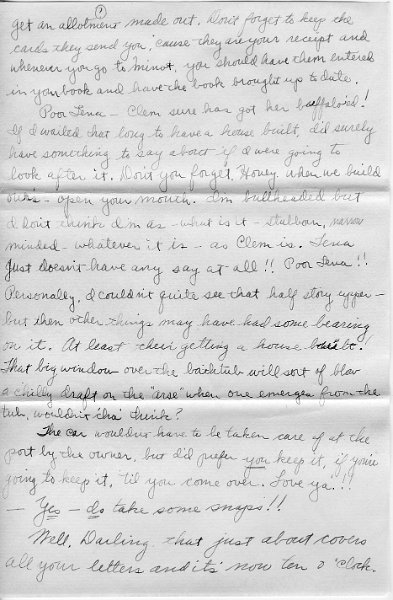 get an allotment made out. Don't forget to keep the
cards they send you, 'cause they are your receipt and
whenever you go to Minot, you should have them entered
in your book and have the book brought up to date.
Poor Teva - Clem sure has got her buffaloed!
If I waited that long to have a house built, I'd surely
have something to say about if I were going to
look after it. Don't you forget, Honey, when we build
ours - open your mouth. I'm bullheaded but
I don't think I'm as - what is it - stubborn, narrow
minded - whatever it is - as Clem is. Teva
just doesn't have any say at all!! Poor Teva!!
Personally, I couldn't quite see that half story upper -
but then other things may have had some bearing
on it. At least they're getting a house built!
That big window over the bathtub will sort of blow
a chilly draft on the "arse" when one emerges from the
tub, wouldn't cha' think?
The car wouldn't have to be taken care of at the
port by the owner, but I'd prefer you keep it, if you're
going to keep it, 'til you come over. Love ya'!!!
- Yes - do take some snaps!!
Well, Darling that just about covers
all your letters and it's now ten o'clock.